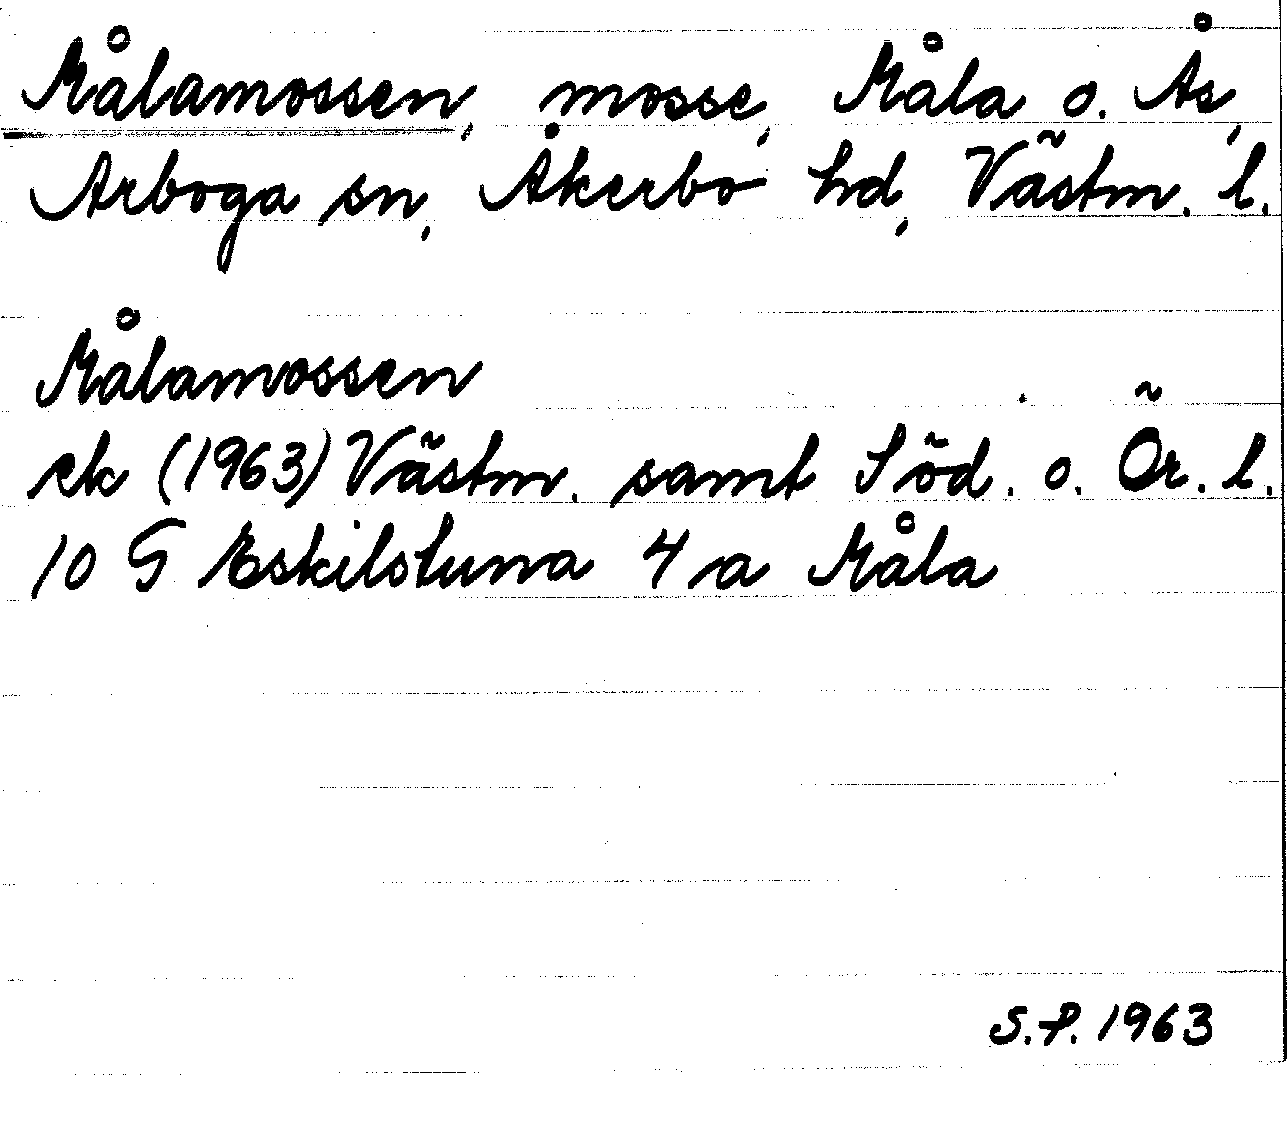 Målamossen, mosse, Måla o. Ås,
Arboga sn, Åkerbo hd, Västm. l.
Målamossen
ek (1963) Västm. samt Söd. o. Ör. l.
10 G Eskilstuna 4 a Måla
S.P. 1963